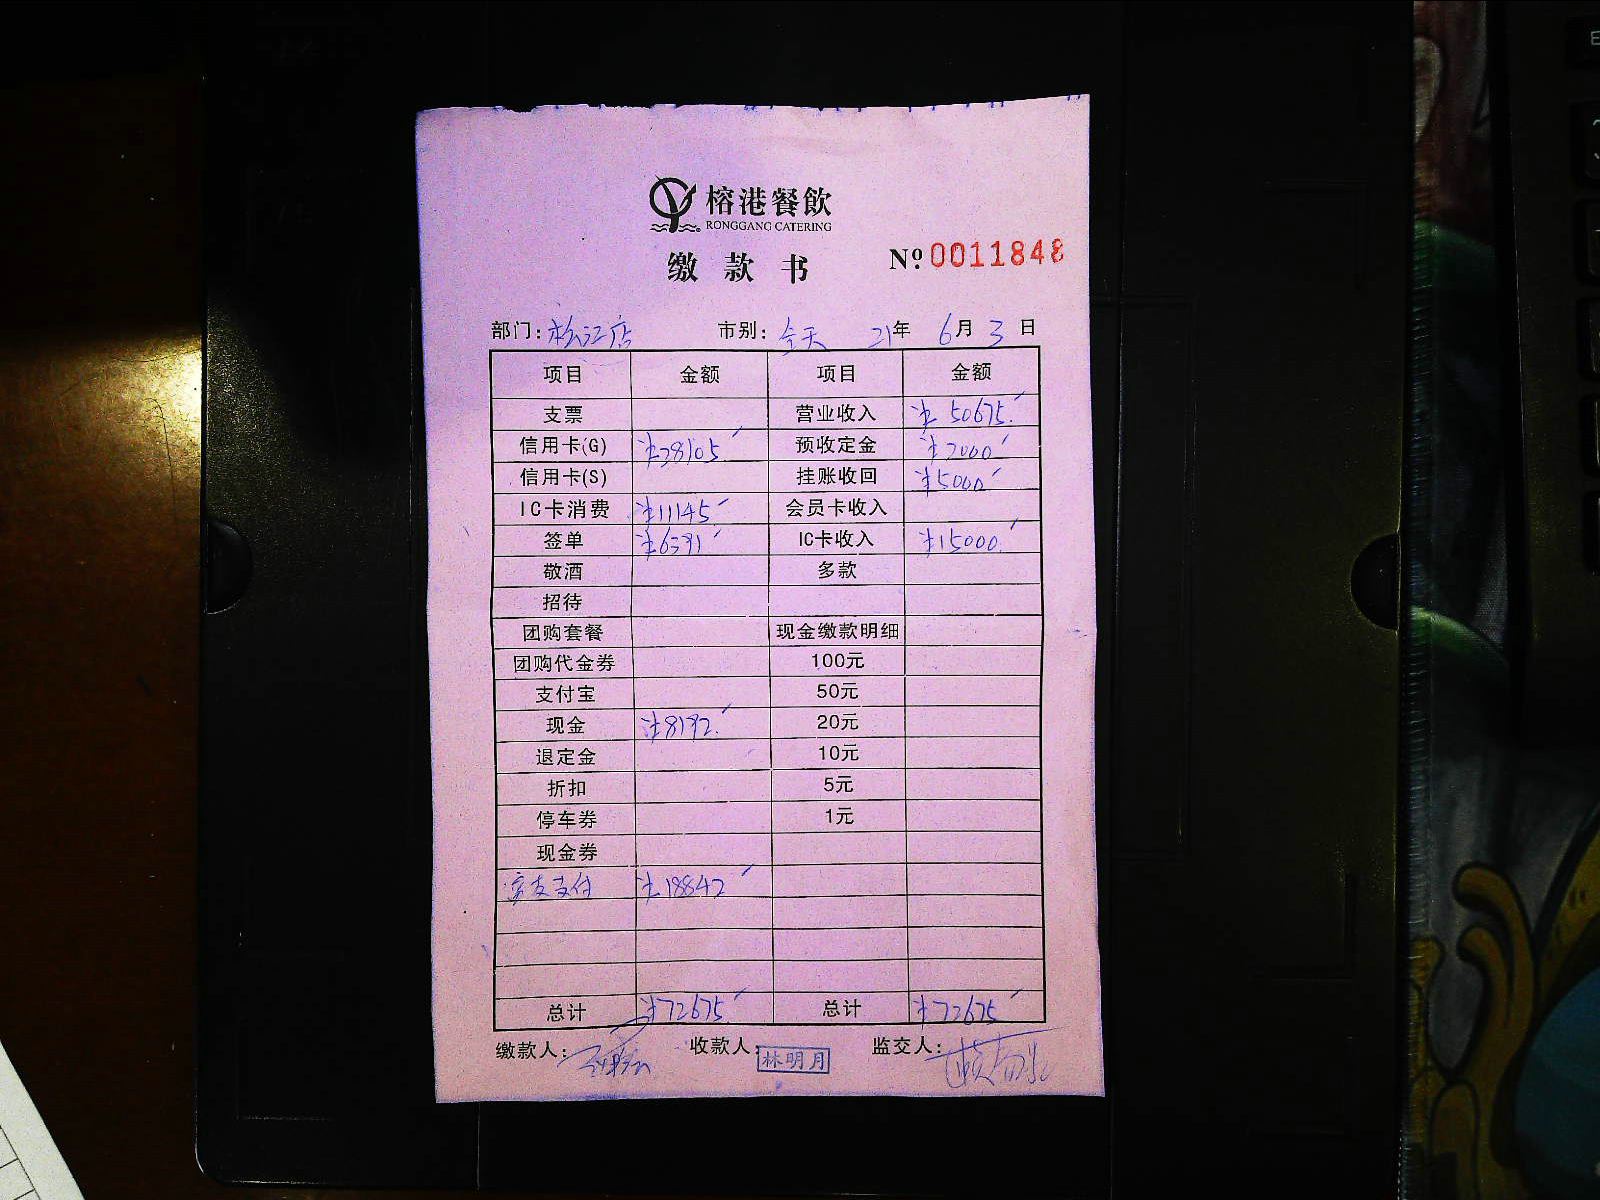 榕港餐飲
RONGGANG CATERING
缴款书 Nº 0011848
部门: 松江店 市别: 全天 21年 6月 3日
项目 金额 项目 金额
支票 营业收入 ¥50675.
信用卡(G) ¥28105 预收定金 ¥2000
信用卡(S) 挂账收回 ¥5000
IC卡消费 ¥11145 会员卡收入
签单 ¥6391 IC卡收入 ¥15000.
敬酒 多款
招待
团购套餐 现金缴款明细
团购代金券 100元
支付宝 50元
现金 ¥8192. 20元
退定金 10元
折扣 5元
停车券 1元
现金券
支付 ¥18842
总计 ¥72675. 总计 ¥72675
缴款人: 收款人: 林明月 监交人: